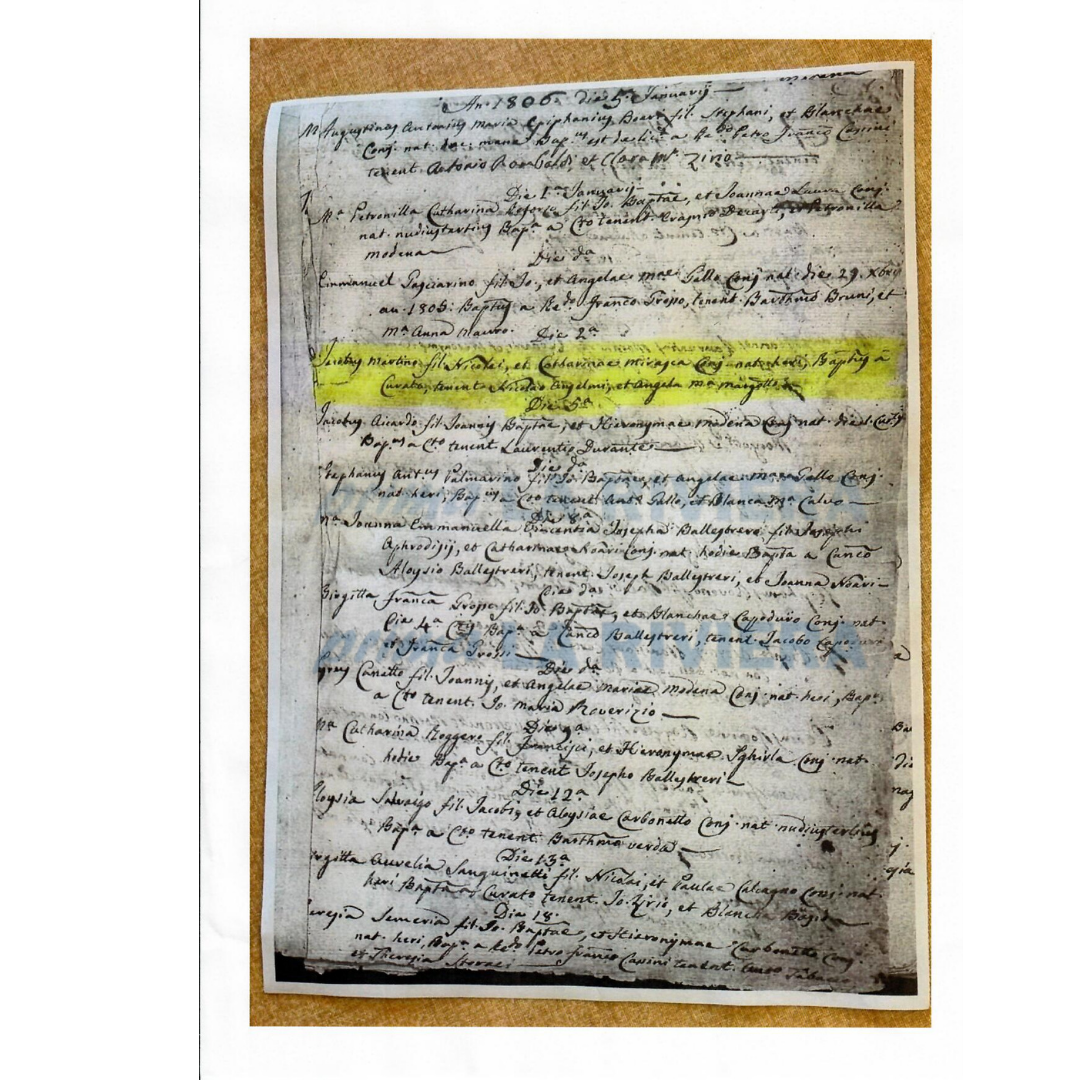 modena
An. 1806. die 5. Januarij
M. Augustinus Antonius Maria Epiphanius Boeri fil. Stephani, et Blanchae
Conj. nat. hoc mane Bap.us est de lic.a a Re.do Petro Franco Cassini
tenent. Antonio Rambaldi, et Clara M.a Zirio
Die 1.a Januarij
M.a Petronilla Catharina fil. Jo. Baptae, et Joannae Laura Conj.
nat. nudiustertius Bap.a a Cto tenent. Erasmo et Petronilla
modena
Die da
Emmanuel Pagliarino fil. Jo., et Angelae mae Gallo Conj. nat. die 29. Xbris
an. 1805. Baptus a Redo Franco Grosso, tenent. Barthmo Bruni, et
ma Anna Mauro.
Die 2a
Jacobus Martino fil. Nicolai, et Catharinae Conj. nat. heri, Baptus a
Curato, tenent. Nicolao Anselmi, et Angela ma
Die 5a
Jacobus Aicardo fil. Joannis Baptae, et Hieronymae Modena Conj. nat. die
Bap.us a Cto tenent Laurentio Durante
Die da
Stephanus Ant.us Palmarino fil. Jo. Baptae, et Angelae Mae Gallo Conj.
nat. heri, Bap.us a Cto tenent. Ant. Gallo, et Blanca Ma Calvo
Die 8a
Ma Joanna Emmanuella Vincentia Josepha Ballestreri fil. Josephi
Aphrodisij, et Catharinae Noari Conj. nat. hodie Bapta a Canco
Aloysio Ballestreri, tenent. Joseph Ballestreri, et Joanna Noari
Die da
Birgitta Franca Grosso fil. Jo. Baptae, et Blanchae Capoduro Conj. nat.
Die 4a Bapa a Canco Ballestreri, tenent. Jacobo Capoduro
et Franca Grossi
LA RIVIERA
Die da
Canetto fil. Joannis, et Angelae Mariae Modena Conj. nat. heri, Bap.
a Cto tenent. Jo. Maria Roverizio
Die 9a
Ma Catharina Roggero fil. Francisci, et Hieronymae Sghirla Conj. nat.
hodie Bapa a Cto tenent Josepho Ballestreri
Die 12a
Aloysia Salvaigo fil. Jacobi, et Aloysiae Carbonetto Conj. nat. nudiustertius
Bapa a Cto tenent. Barthmo Verda
Die 13a
Birgitta Aurelia Sanguinetti fil. Nicolai, et Paulae Calcagno Conj. nat.
heri Bapta a Curato tenent. Jo. Zirio, et Blancha
Die 18.
Teresia Semeria fil. Jo. Baptae, et Hieronymae Carbonetto Conj.
nat. heri, Bapa a Redo Petro Franco Cassini tenent.
et Theresia